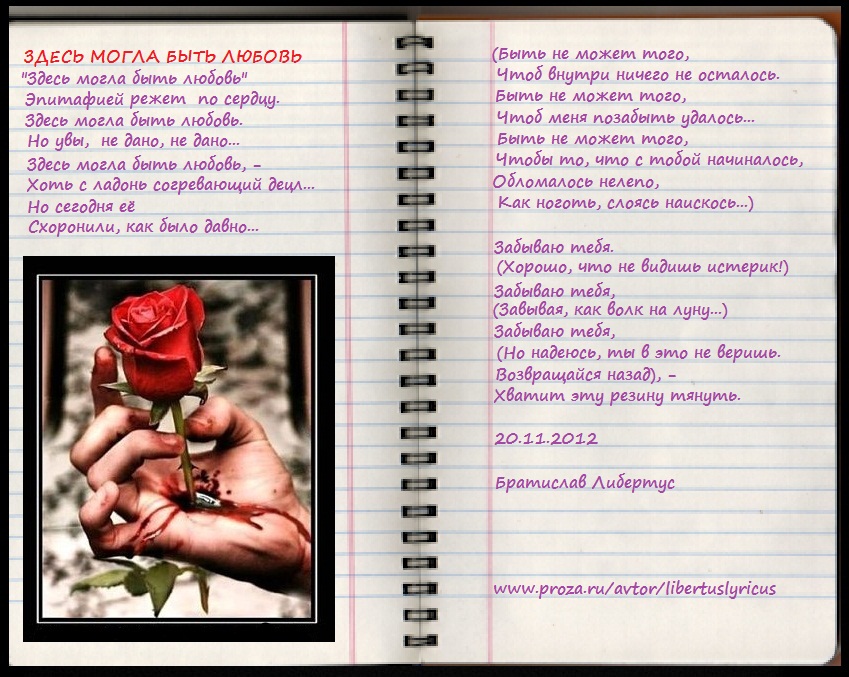 ЗДЕСЬ МОГЛА БЫТЬ ЛЮБОВЬ
"Здесь могла быть любовь"
Эпитафией режет по сердцу.
Здесь могла быть любовь.
Но увы, не дано, не дано...
Здесь могла быть любовь, –
Хоть с ладонь согревающий децл...
Но сегодня её
Схоронили, как было давно...
(Быть не может того,
Чтоб внутри ничего не осталось.
Быть не может того,
Чтоб меня позабыть удалось...
Быть не может того,
Чтобы то, что с тобой начиналось,
Обломалось нелепо,
Как ноготь, слоясь наискось...)
Забываю тебя.
(Хорошо, что не видишь истерик!)
Забываю тебя,
(Завывая, как волк на луну...)
Забываю тебя,
(Но надеюсь, ты в это не веришь.
Возвращайся назад), –
Хватит эту резину тянуть.
20.11.2012
Братислав Либертус
www.proza.ru/avtor/libertuslyricus